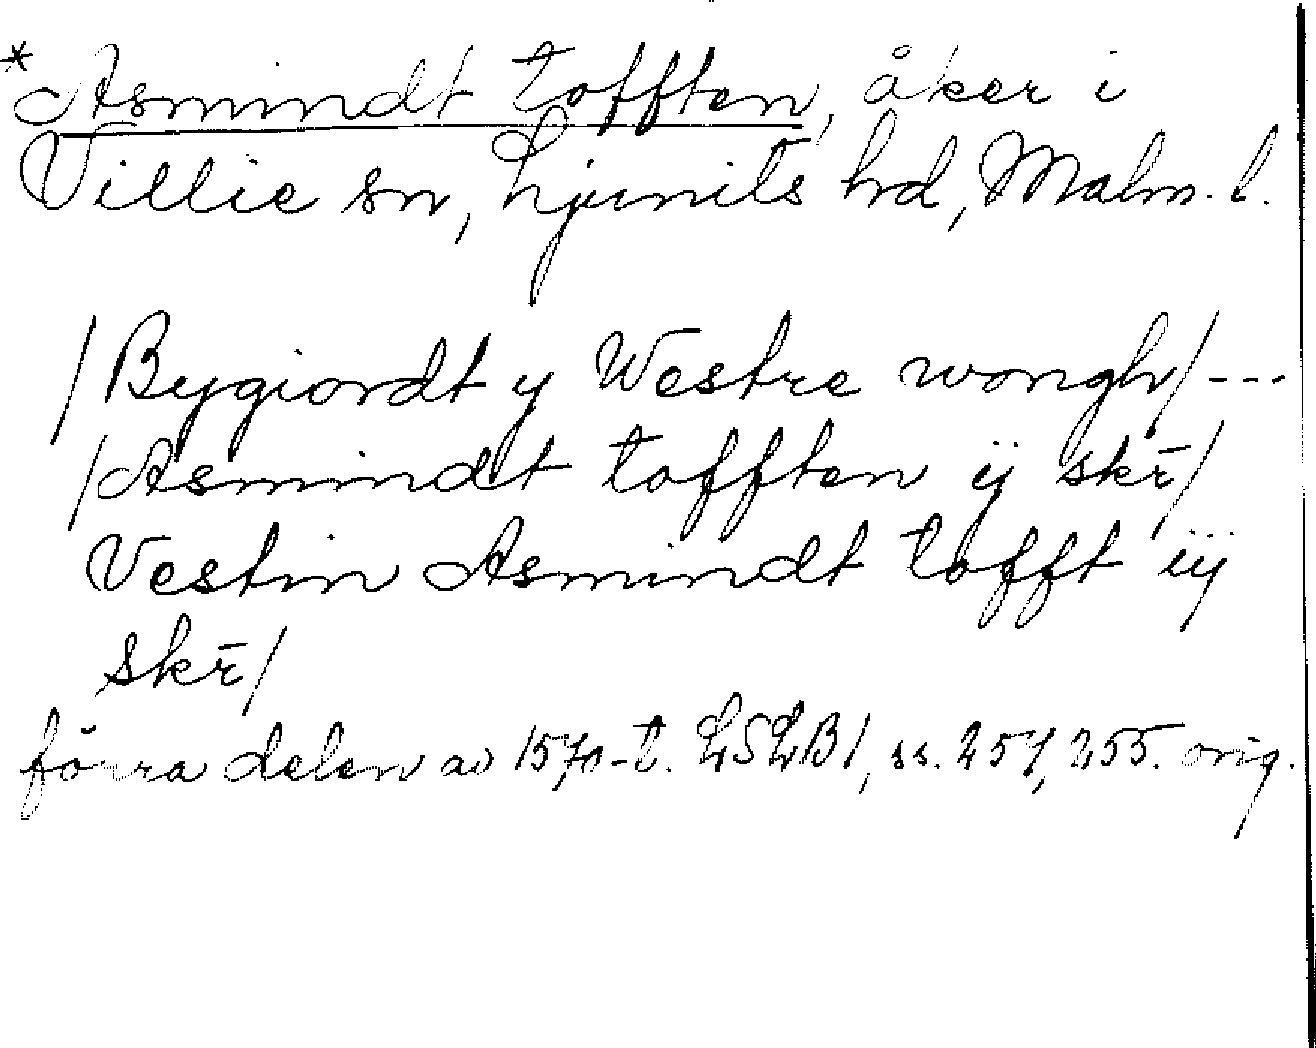 *Asmindt tofften, åker i
Villie sn, Ljunits hrd, Malm. l.
/Bygiordt y Westre wongh/ ---
/Asmindt tofften ij skr̄/
Vestin Asmindt tofft iij
skr̄/
förra delen av 1570-t. LSLB1, ss. 257, 255. orig.